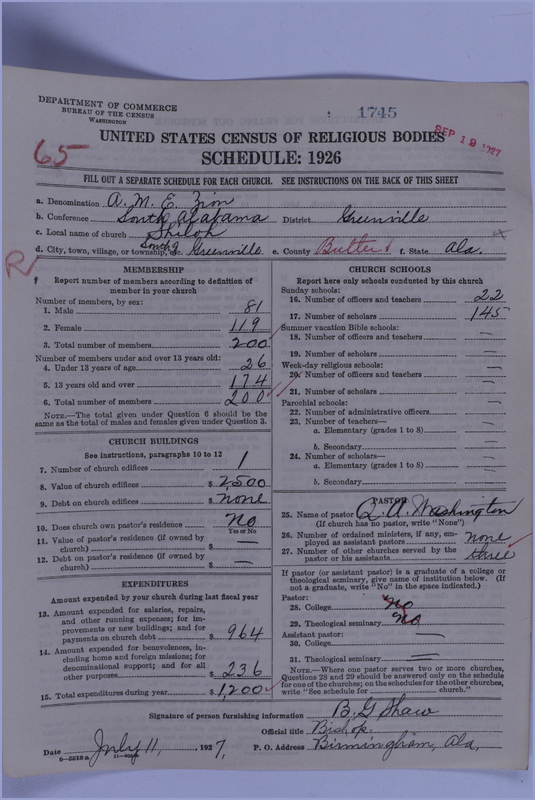 DEPARTMENT OF COMMERCE
BUREAU OF THE CENSUS
WASHINGTON
1745
SEP 19 1927
UNITED STATES CENSUS OF RELIGIOUS BODIES
SCHEDULE: 1926
65
FILL OUT A SEPARATE SCHEDULE FOR EACH CHURCH. SEE INSTRUCTIONS ON THE BACK OF THIS SHEET
a. Denomination A. M. E. Zion
b. Conference South Alabama District Greenville
c. Local name of church Shiloh
d. City, town, village, or township, etc. Greenville e. County Butler f. State Ala.
R
MEMBERSHIP
Report number of members according to definition of member in your church
Number of members, by sex:
1. Male 81
2. Female 119
3. Total number of members 200
Number of members under and over 13 years old:
4. Under 13 years of age 26
5. 13 years old and over 174
6. Total number of members 200
NOTE.—The total given under Question 6 should be the
same as the total of males and females given under Question 3.
CHURCH BUILDINGS
See instructions, paragraphs 10 to 12
7. Number of church edifices 1
8. Value of church edifices $ 2,500
9. Debt on church edifices $ none
10. Does church own pastor's residence No
Yes or No
11. Value of pastor's residence (if owned by
church) $ —
12. Debt on pastor's residence (if owned by
church) $ —
EXPENDITURES
Amount expended by your church during last fiscal year
13. Amount expended for salaries, repairs,
and other running expenses; for im-
provements or new buildings; and for
payments on church debt $ 964
14. Amount expended for benevolences, in-
cluding home and foreign missions; for
denominational support; and for all
other purposes $ 236
15. Total expenditures during year $ 1,200
CHURCH SCHOOLS
Report here only schools conducted by this church
Sunday schools:
16. Number of officers and teachers 22
17. Number of scholars 145
Summer vacation Bible schools:
18. Number of officers and teachers —
19. Number of scholars —
Week-day religious schools:
20. Number of officers and teachers —
21. Number of scholars —
Parochial schools:
22. Number of administrative officers —
23. Number of teachers—
a. Elementary (grades 1 to 8) —
b. Secondary —
24. Number of scholars—
a. Elementary (grades 1 to 8) —
b. Secondary —
PASTOR
25. Name of pastor Q. A. Washington
(If church has no pastor, write "None")
26. Number of ordained ministers, if any, em-
ployed as assistant pastors none
27. Number of other churches served by the
pastor or his assistants three
If pastor (or assistant pastor) is a graduate of a college or
theological seminary, give name of institution below. (If
not a graduate, write "No" in the space indicated.)
Pastor:
28. College No
29. Theological seminary No
Assistant pastor:
30. College —
31. Theological seminary —
NOTE.—Where one pastor serves two or more churches,
Questions 28 and 29 should be answered only on the schedule
for one of the churches; on the schedules for the other churches,
write "See schedule for church."
Signature of person furnishing information B. G Shaw
Official title Bishop.
Date July 11, 1927. P. O. Address Birmingham, Ala,